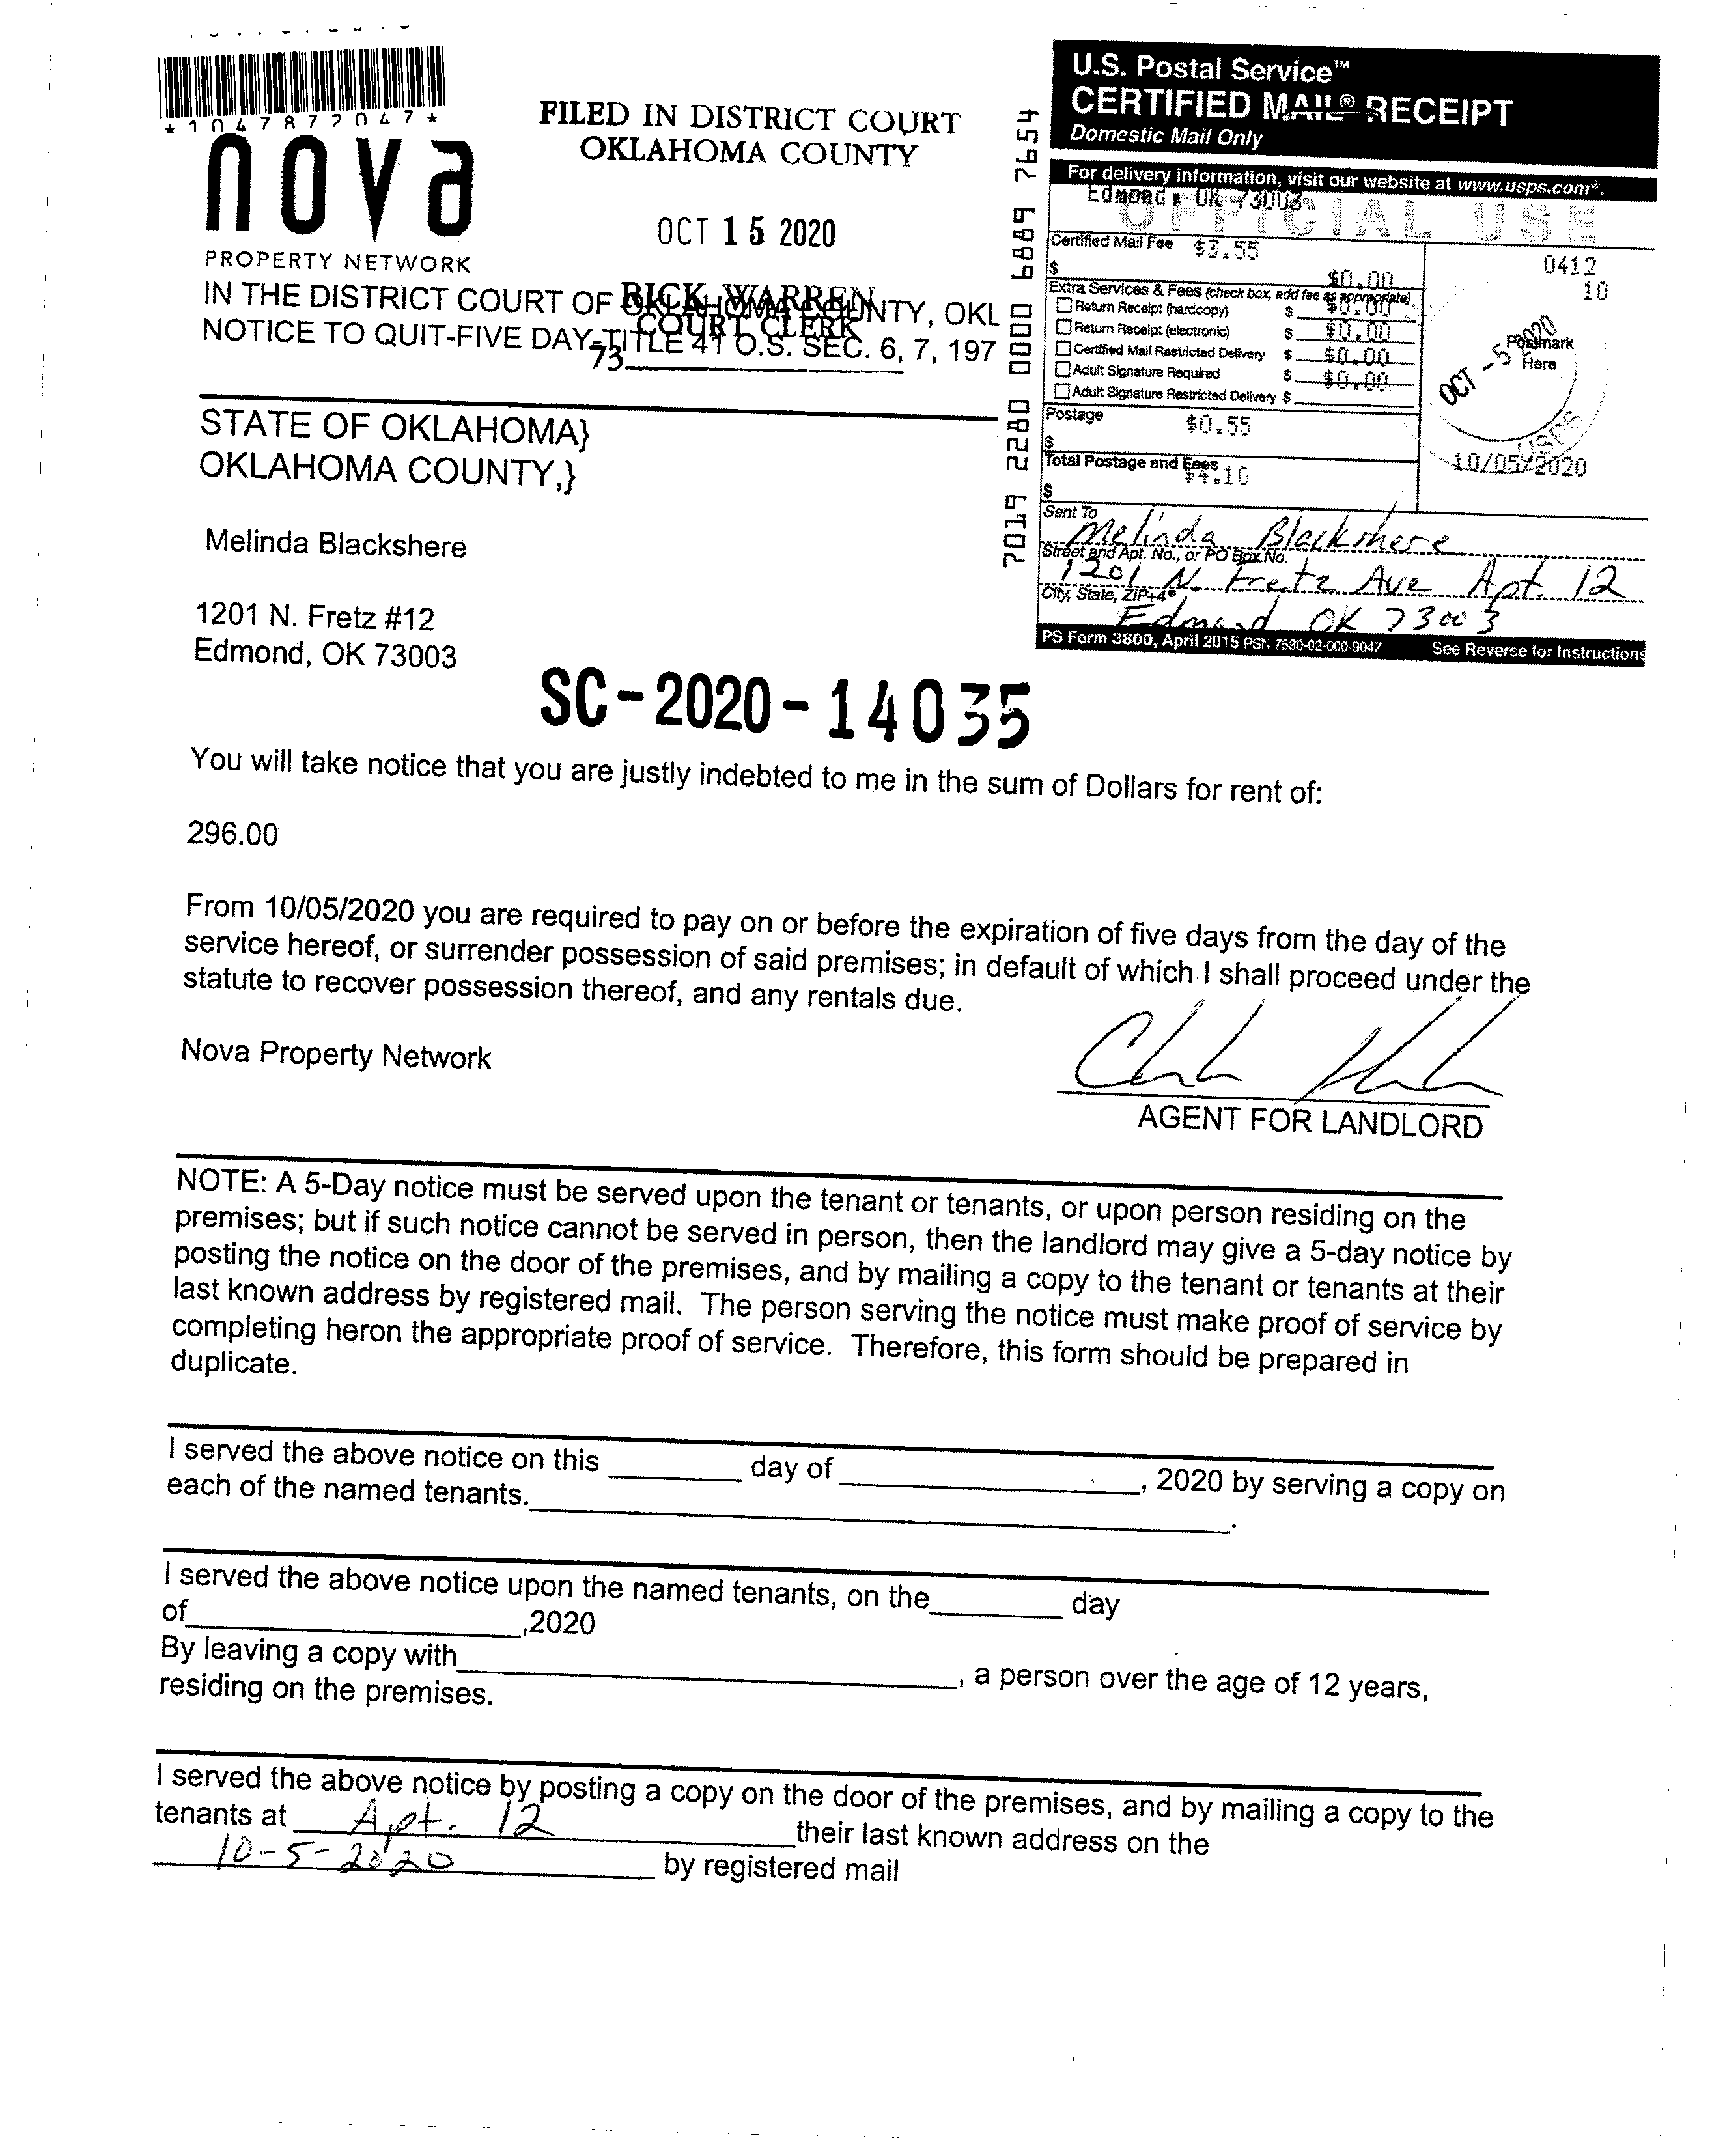 *1047877047*
nova
PROPERTY NETWORK
FILED IN DISTRICT COURT
OKLAHOMA COUNTY
OCT 15 2020
RICK WARREN
COURT CLERK
73
IN THE DISTRICT COURT OF OKLAHOMA COUNTY, OKL
NOTICE TO QUIT-FIVE DAY-TITLE 41 O.S. SEC. 6, 7, 197
7019 2280 0000 6889 7654
U.S. Postal Service™
CERTIFIED MAIL® RECEIPT
Domestic Mail Only
For delivery information, visit our website at www.usps.com®.
Edmond, OK 73003
OFFICIAL USE
Certified Mail Fee $3.55
$
$0.00
Extra Services & Fees (check box, add fee as appropriate)
Return Receipt (hardcopy) $ $0.00
Return Receipt (electronic) $ $0.00
Certified Mail Restricted Delivery $ $0.00
Adult Signature Required $ $0.00
Adult Signature Restricted Delivery $
Postage $0.55
$
Total Postage and Fees $4.10
$
0412
10
Postmark
Here
OCT - 5 2020
USPS
10/05/2020
Sent To
Melinda Blackshere
Street and Apt. No., or PO Box No.
1201 N. Fretz Ave Apt. 12
City, State, ZIP+4®
Edmond OK 73003
PS Form 3800, April 2015 PSN 7530-02-000-9047 See Reverse for Instructions
STATE OF OKLAHOMA}
OKLAHOMA COUNTY,}
Melinda Blackshere
1201 N. Fretz #12
Edmond, OK 73003
SC-2020-14035
You will take notice that you are justly indebted to me in the sum of Dollars for rent of:
296.00
From 10/05/2020 you are required to pay on or before the expiration of five days from the day of the
service hereof, or surrender possession of said premises; in default of which I shall proceed under the
statute to recover possession thereof, and any rentals due.
Nova Property Network
AGENT FOR LANDLORD
NOTE: A 5-Day notice must be served upon the tenant or tenants, or upon person residing on the
premises; but if such notice cannot be served in person, then the landlord may give a 5-day notice by
posting the notice on the door of the premises, and by mailing a copy to the tenant or tenants at their
last known address by registered mail. The person serving the notice must make proof of service by
completing heron the appropriate proof of service. Therefore, this form should be prepared in
duplicate.
I served the above notice on this ________ day of __________________, 2020 by serving a copy on
each of the named tenants.__________________________________________.
I served the above notice upon the named tenants, on the________ day
of____________________,2020
By leaving a copy with______________________________, a person over the age of 12 years,
residing on the premises.
I served the above notice by posting a copy on the door of the premises, and by mailing a copy to the
tenants at Apt. 12 their last known address on the
10-5-2020 by registered mail